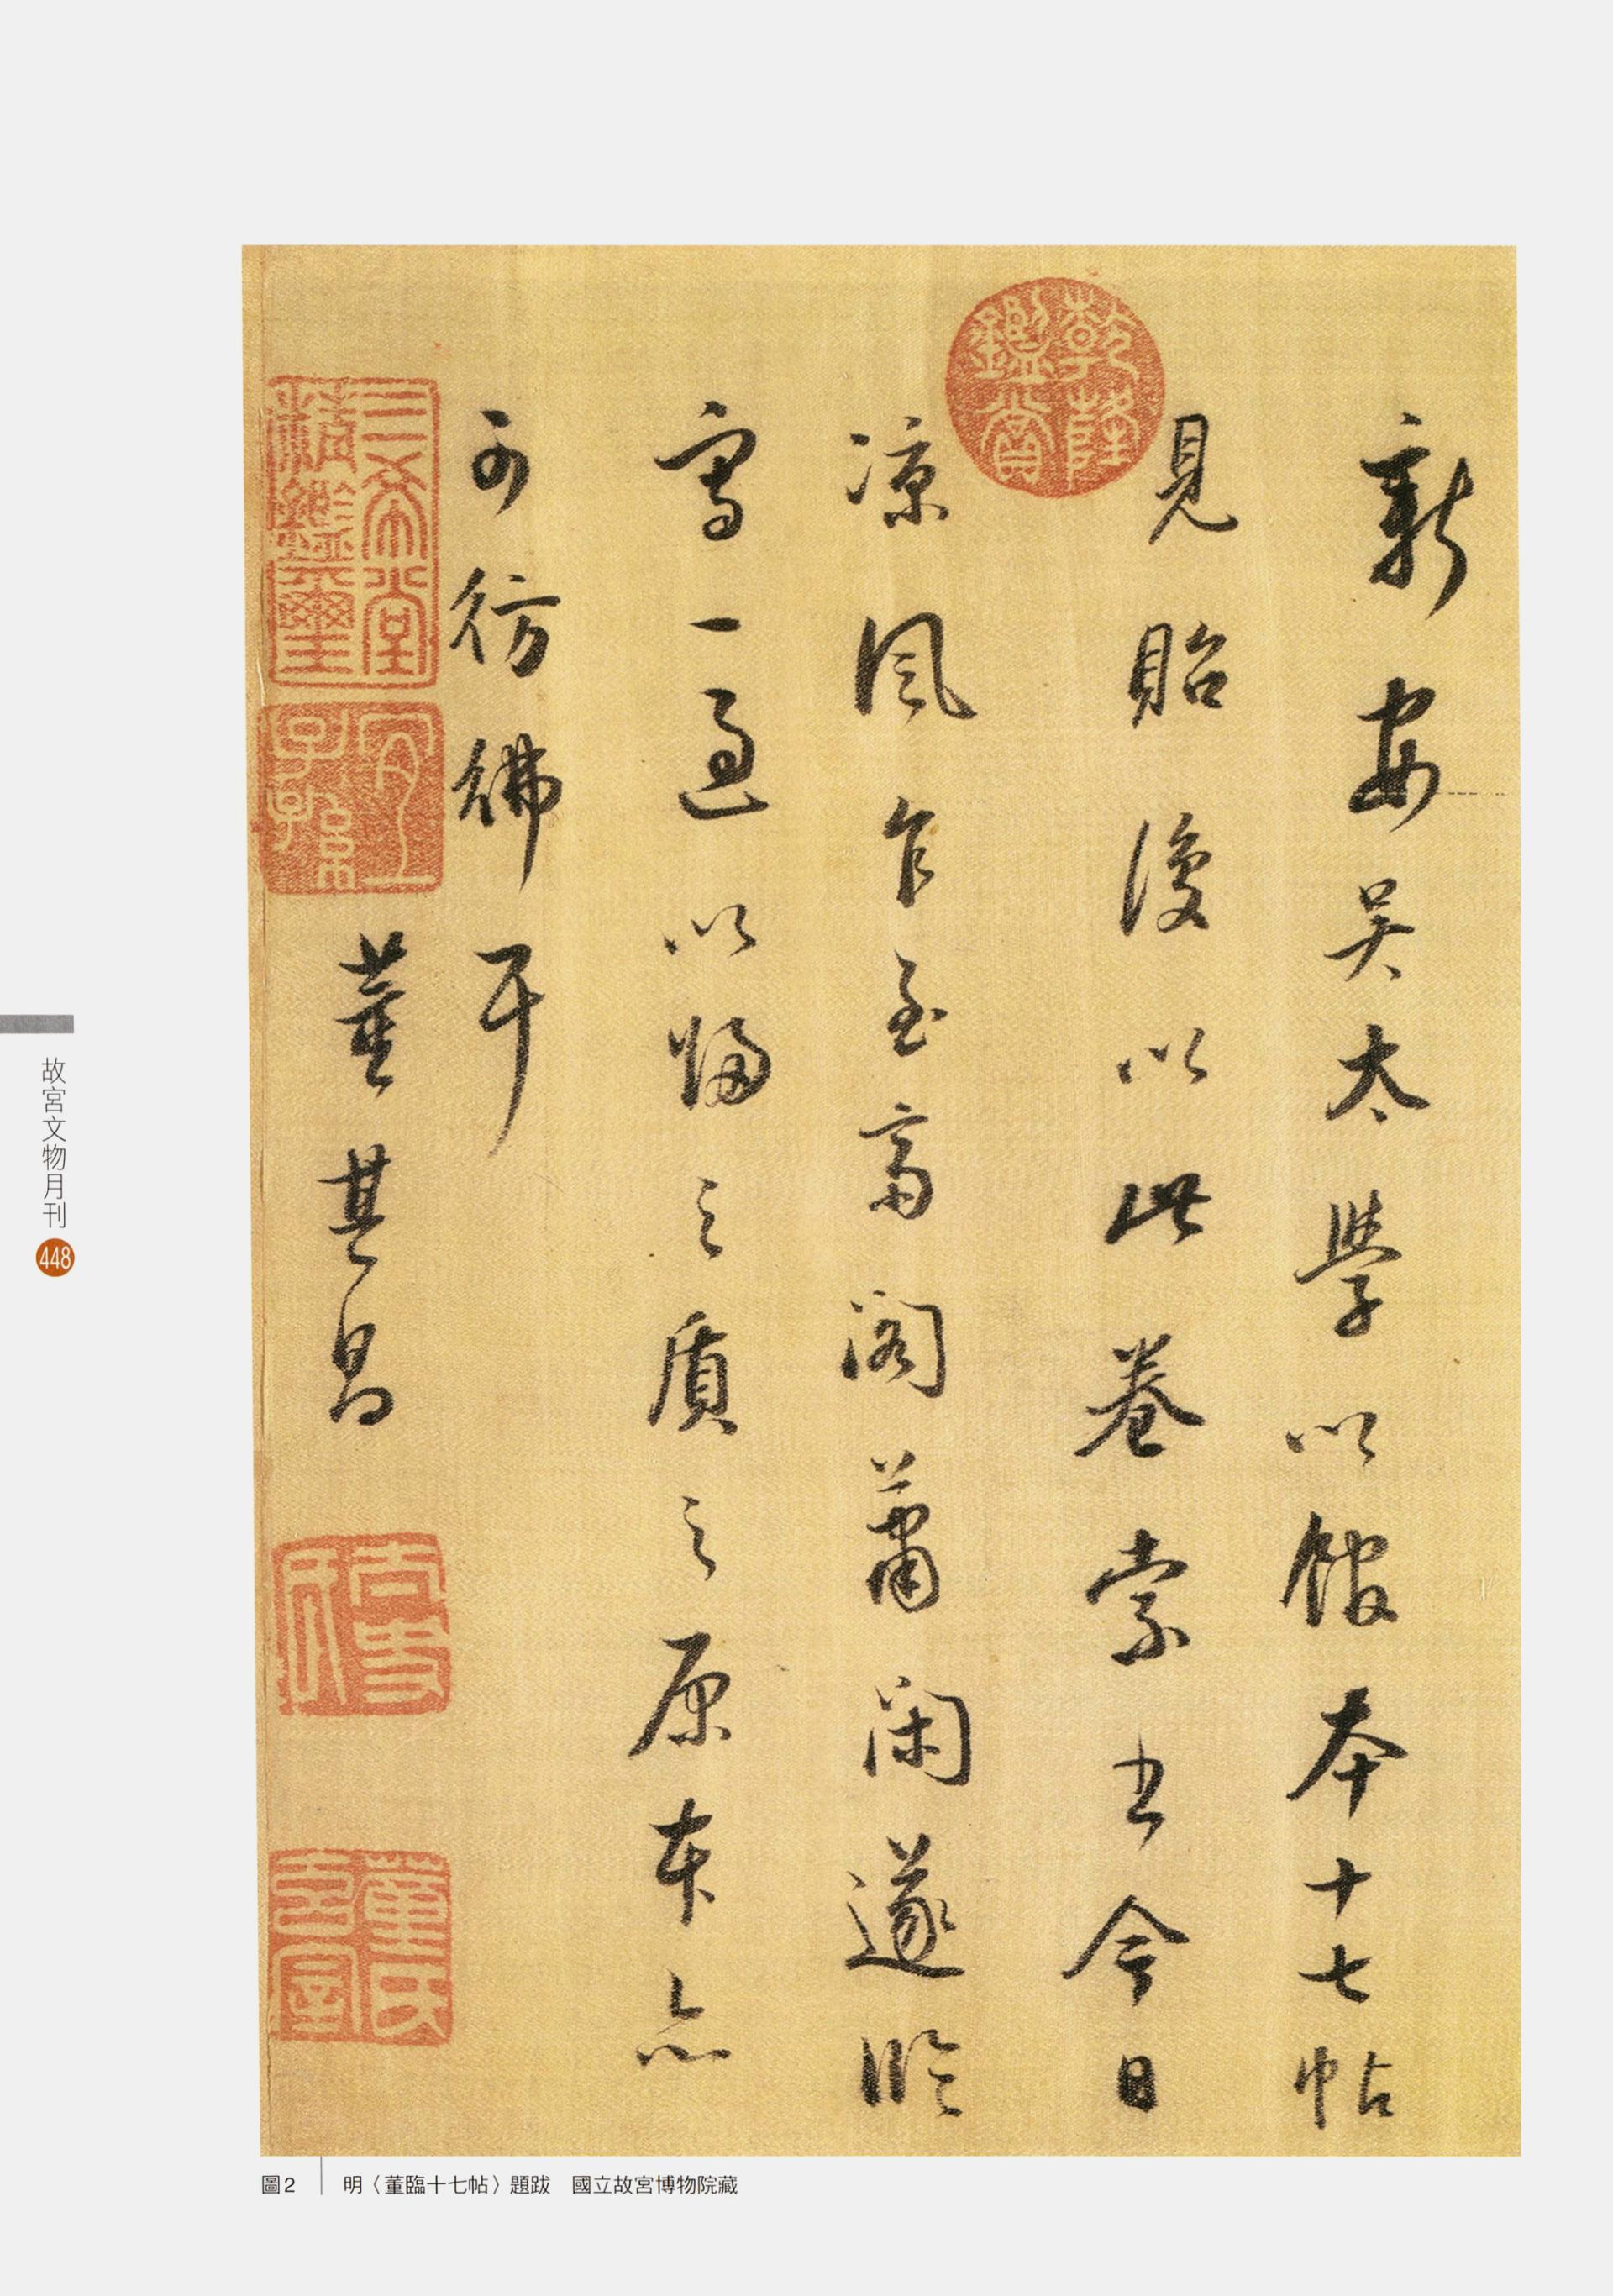 新安吳太學以館本十七帖
見貽復以此卷索書今日
涼風乍至高閣蕭閑遂臨
寫一過以歸之質之原本亦
可彷彿耳
董其昌
乾隆鑑賞
三希堂精鑑璽
宜子孫
董氏玄宰
故宮文物月刊 448
圖2 明〈董臨十七帖〉題跋 國立故宮博物院藏